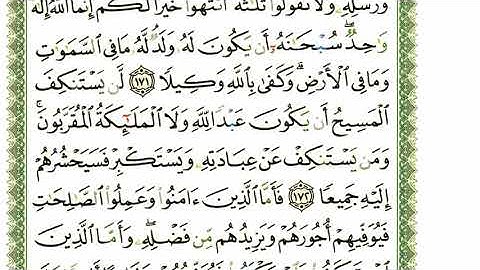 وَرُسُلِهِۦ وَلَا تَقُولُوا۟ ثَلَـٰثَةٌ ٱنتَهُوا۟ خَيْرًا لَّكُمْ إِنَّمَا ٱللَّهُ إِلَـٰهٌ
وَٰحِدٌ سُبْحَـٰنَهُۥٓ أَن يَكُونَ لَهُۥ وَلَدٌ لَّهُۥ مَا فِى ٱلسَّمَـٰوَٰتِ
وَمَا فِى ٱلْأَرْضِ وَكَفَىٰ بِٱللَّهِ وَكِيلًا ١٧١ لَّن يَسْتَنكِفَ
ٱلْمَسِيحُ أَن يَكُونَ عَبْدًا لِّلَّهِ وَلَا ٱلْمَلَـٰٓئِكَةُ ٱلْمُقَرَّبُونَ
وَمَن يَسْتَنكِفْ عَنْ عِبَادَتِهِۦ وَيَسْتَكْبِرْ فَسَيَحْشُرُهُمْ
إِلَيْهِ جَمِيعًا ١٧٢ فَأَمَّا ٱلَّذِينَ ءَامَنُوا۟ وَعَمِلُوا۟ ٱلصَّـٰلِحَـٰتِ
فَيُوَفِّيهِمْ أُجُورَهُمْ وَيَزِيدُهُم مِّن فَضْلِهِۦ وَأَمَّا ٱلَّذِينَ